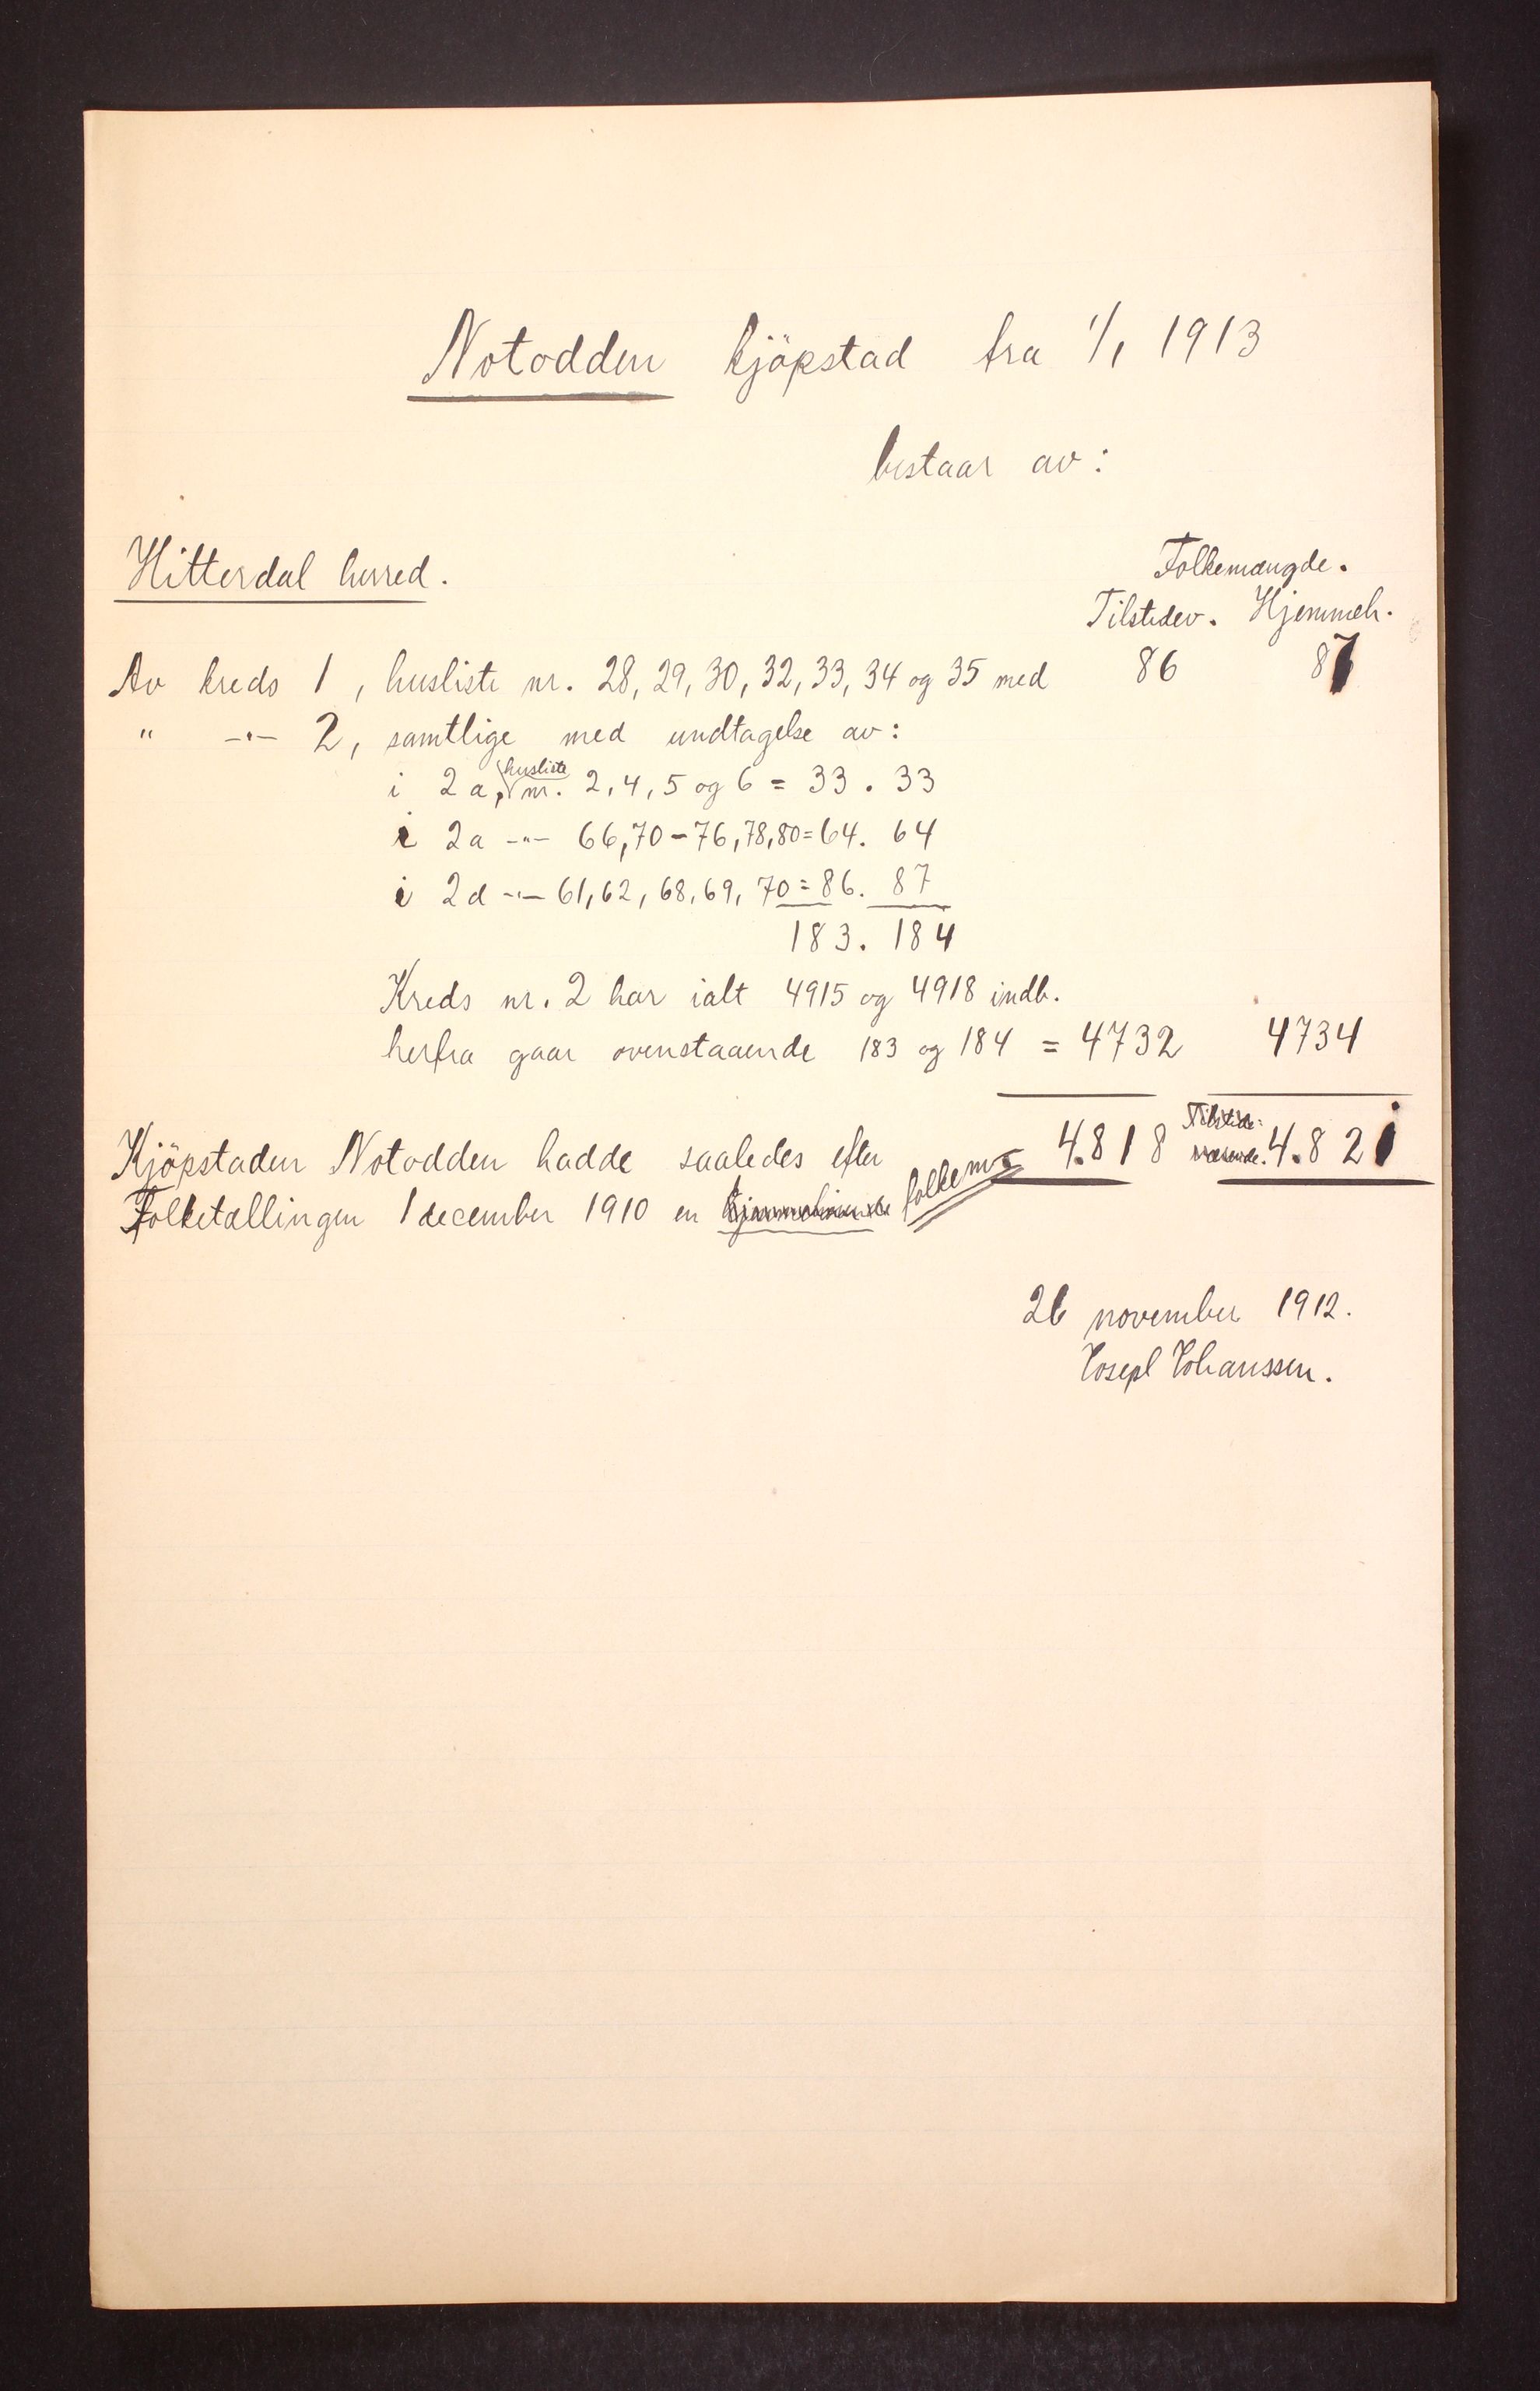 Notodden kjöpstad fra 1/1 1913
bestaar av:
Hitterdal herred.
Folkemængde.
Tilstedev. Hjemmeh.
Av kreds 1, husliste nr. 28, 29, 30, 32, 33, 34 og 35 med 86 87
" -"- 2, samtlige med undtagelse av:
i 2a, husliste nr. 2, 4, 5 og 6 = 33. 33
i 2a -"- 66, 70-76, 78, 80 = 64. 64
i 2d -"- 61, 62, 68, 69, 70 = 86. 87
183. 184
Kreds nr. 2 har ialt 4915 og 4918 indb.
herfra gaar ovenstaaende 183 og 184 = 4732 4734
Kjöpstaden Notodden hadde saaledes efter 4.818 Tilstede-værende. 4.821
Folketællingen 1 december 1910 en hjemmehørende folkem.
26 november 1912.
Josepl Johanssen.